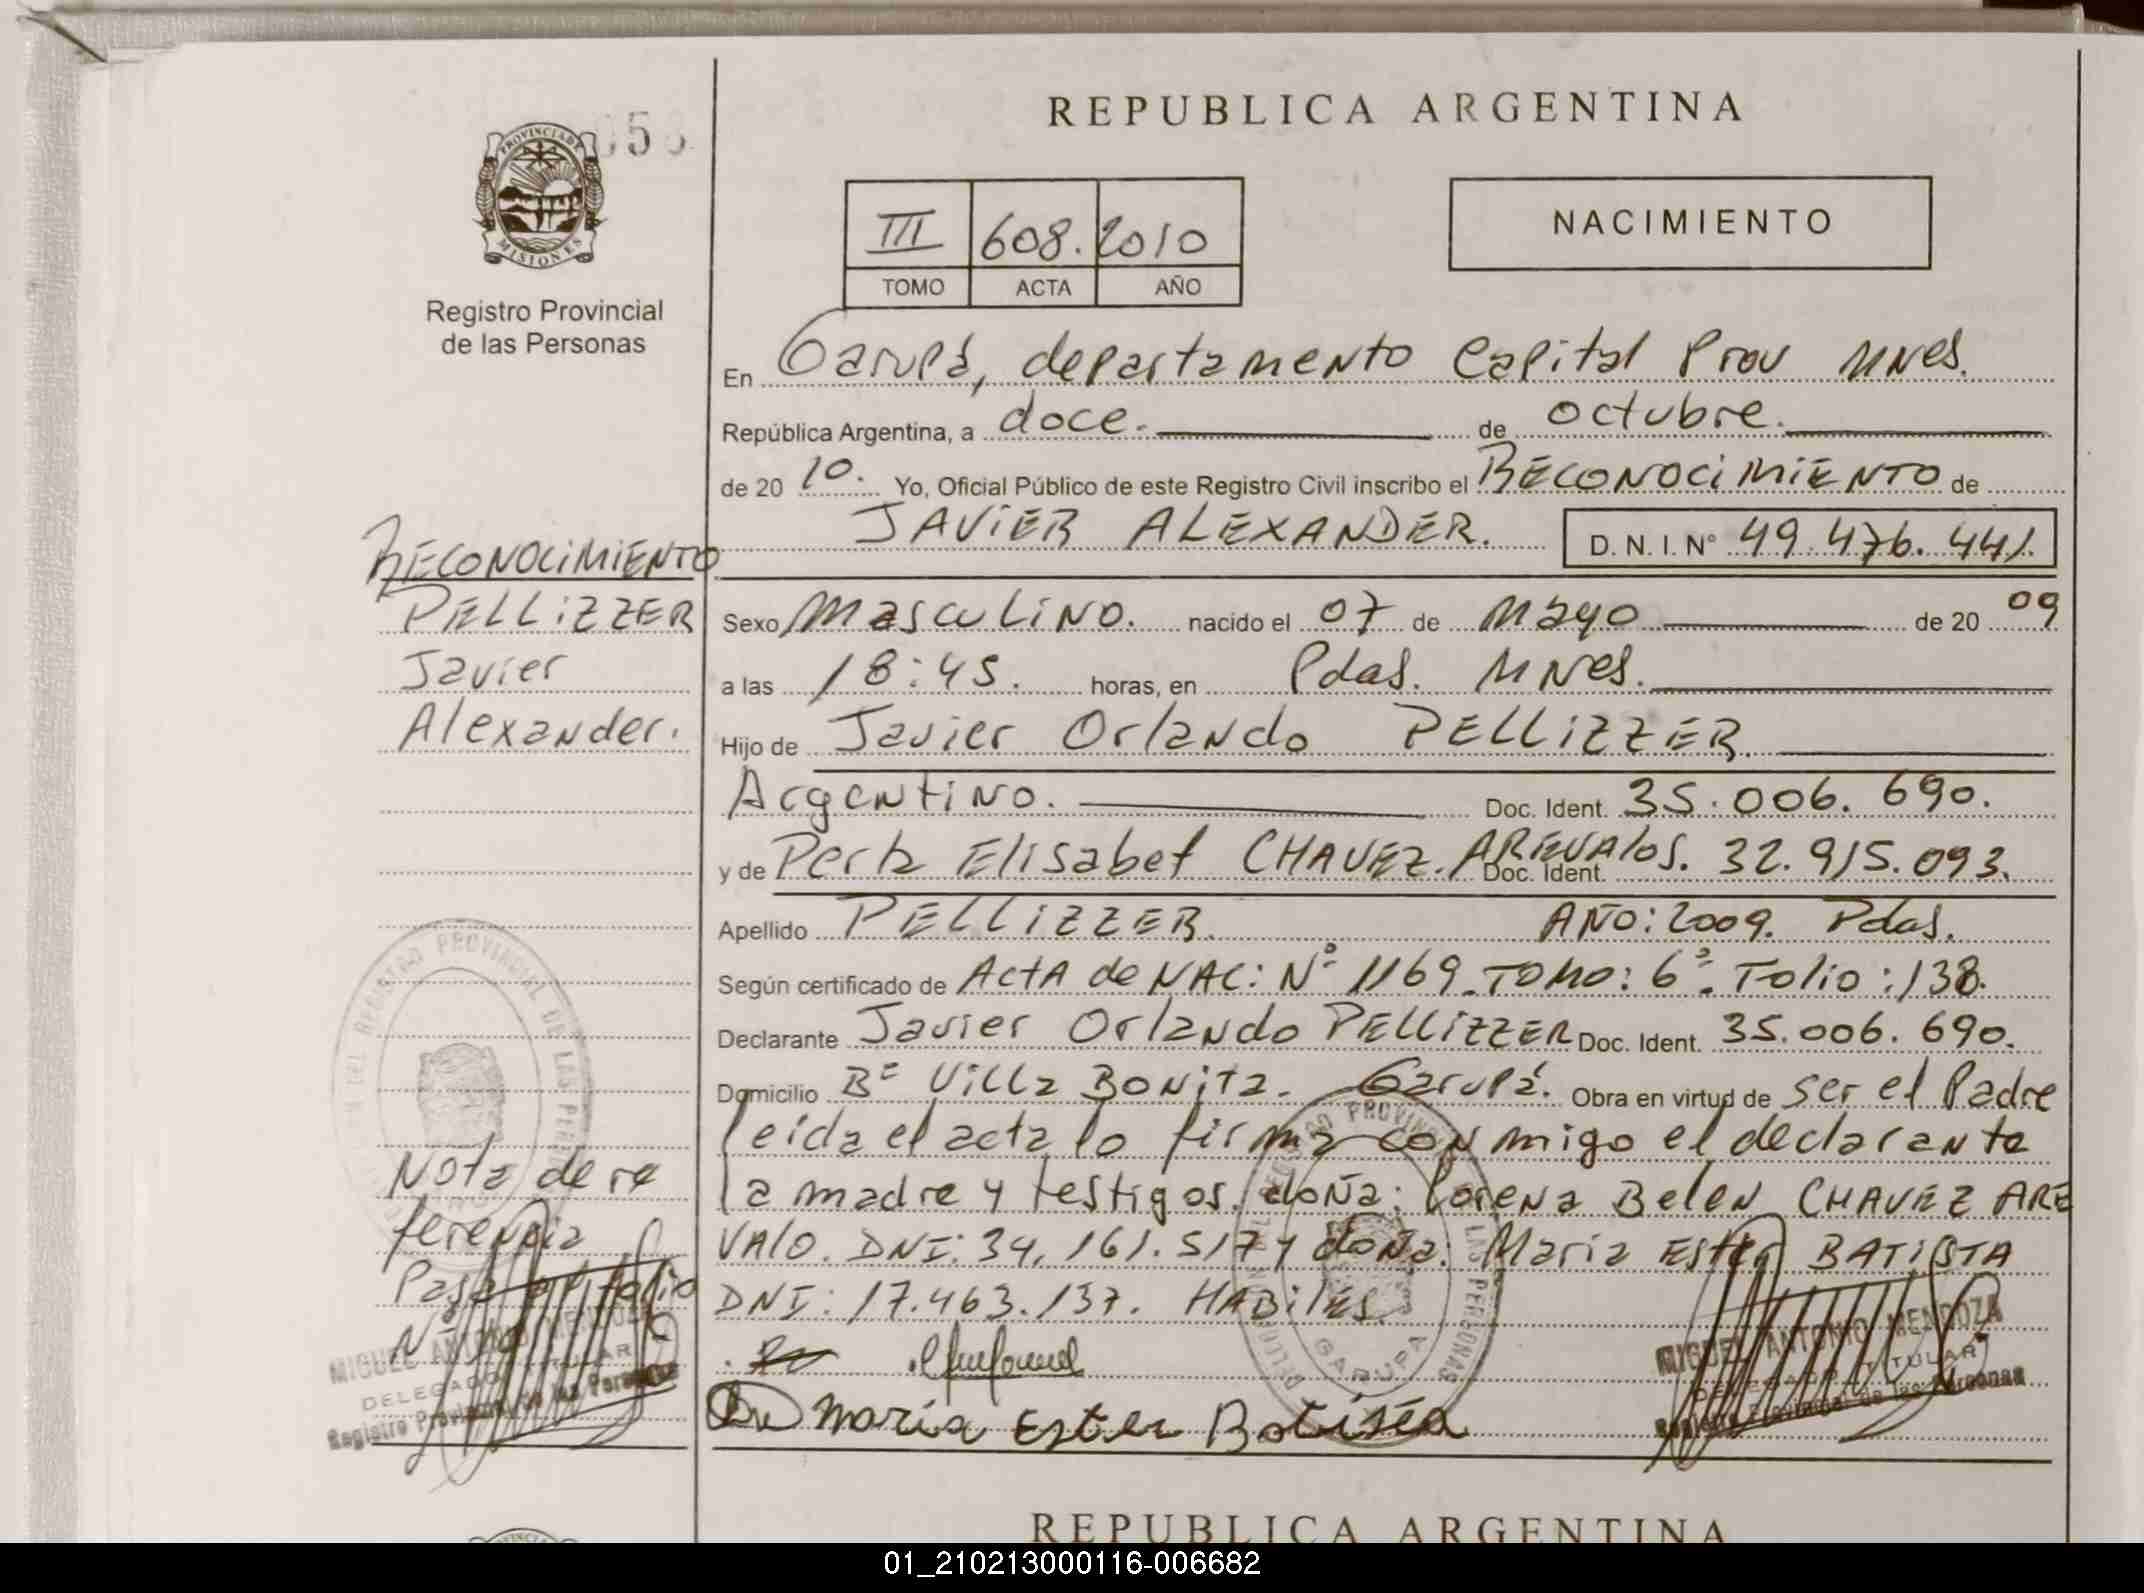 REPUBLICA ARGENTINA
PROVINCIA DE
MISIONES
Registro Provincial
de las Personas
III 608. 2010
TOMO ACTA AÑO
NACIMIENTO
En Garupá, departamento Capital Prov MNes.
República Argentina, a doce. de octubre.
de 20 10. Yo, Oficial Público de este Registro Civil inscribo el RECONOCIMIENTO de
JAVIER ALEXANDER. D. N. I. N° 49.476.441.
RECONOCIMIENTO
PELLIZZER
Javier
Alexander.
Sexo Masculino. nacido el 07 de Mayo de 20 09
a las 18:45. horas, en Pdas. MNes.
Hijo de Javier Orlando PELLIZZER.
Argentino. Doc. Ident. 35.006.690.
y de Perla Elisabet CHAVEZ. AREVALOS. Doc. Ident. 32.915.093.
Apellido PELLIZZER. AÑO: 2009. Pdas.
Según certificado de ActA de NAC: N° 1169. TOMO: 6°. Folio: 138.
Declarante Javier Orlando PELLIZZER Doc. Ident. 35.006.690.
Domicilio B° Villa Bonita. Garupá. Obra en virtud de ser el Padre
leida el acta lo firma conmigo el declarante
la madre y testigos. doña: Lorena Belen CHAVEZ ARE
VALO. DNI: 34.161.517 y doña: Maria Ester BATISTA
DNI: 17.463.137. HABILES.
Maria Ester Batista
Nota de re
ferencia
Pasa al folio
MIGUEL ANTONIO MENDOZA
DELEGADO TITULAR
Registro Provincial de las Personas
MIGUEL ANTONIO MENDOZA
DELEGADO TITULAR
Registro Provincial de las Personas
REGISTRO PROVINCIAL DE LAS PERSONAS
GARUPA
REPUBLICA ARGENTINA
01_210213000116-006682